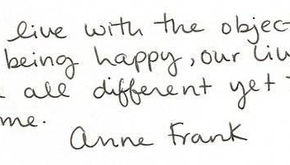 live with the objec
being happy, our liv
all different yet
me.
Anne Frank